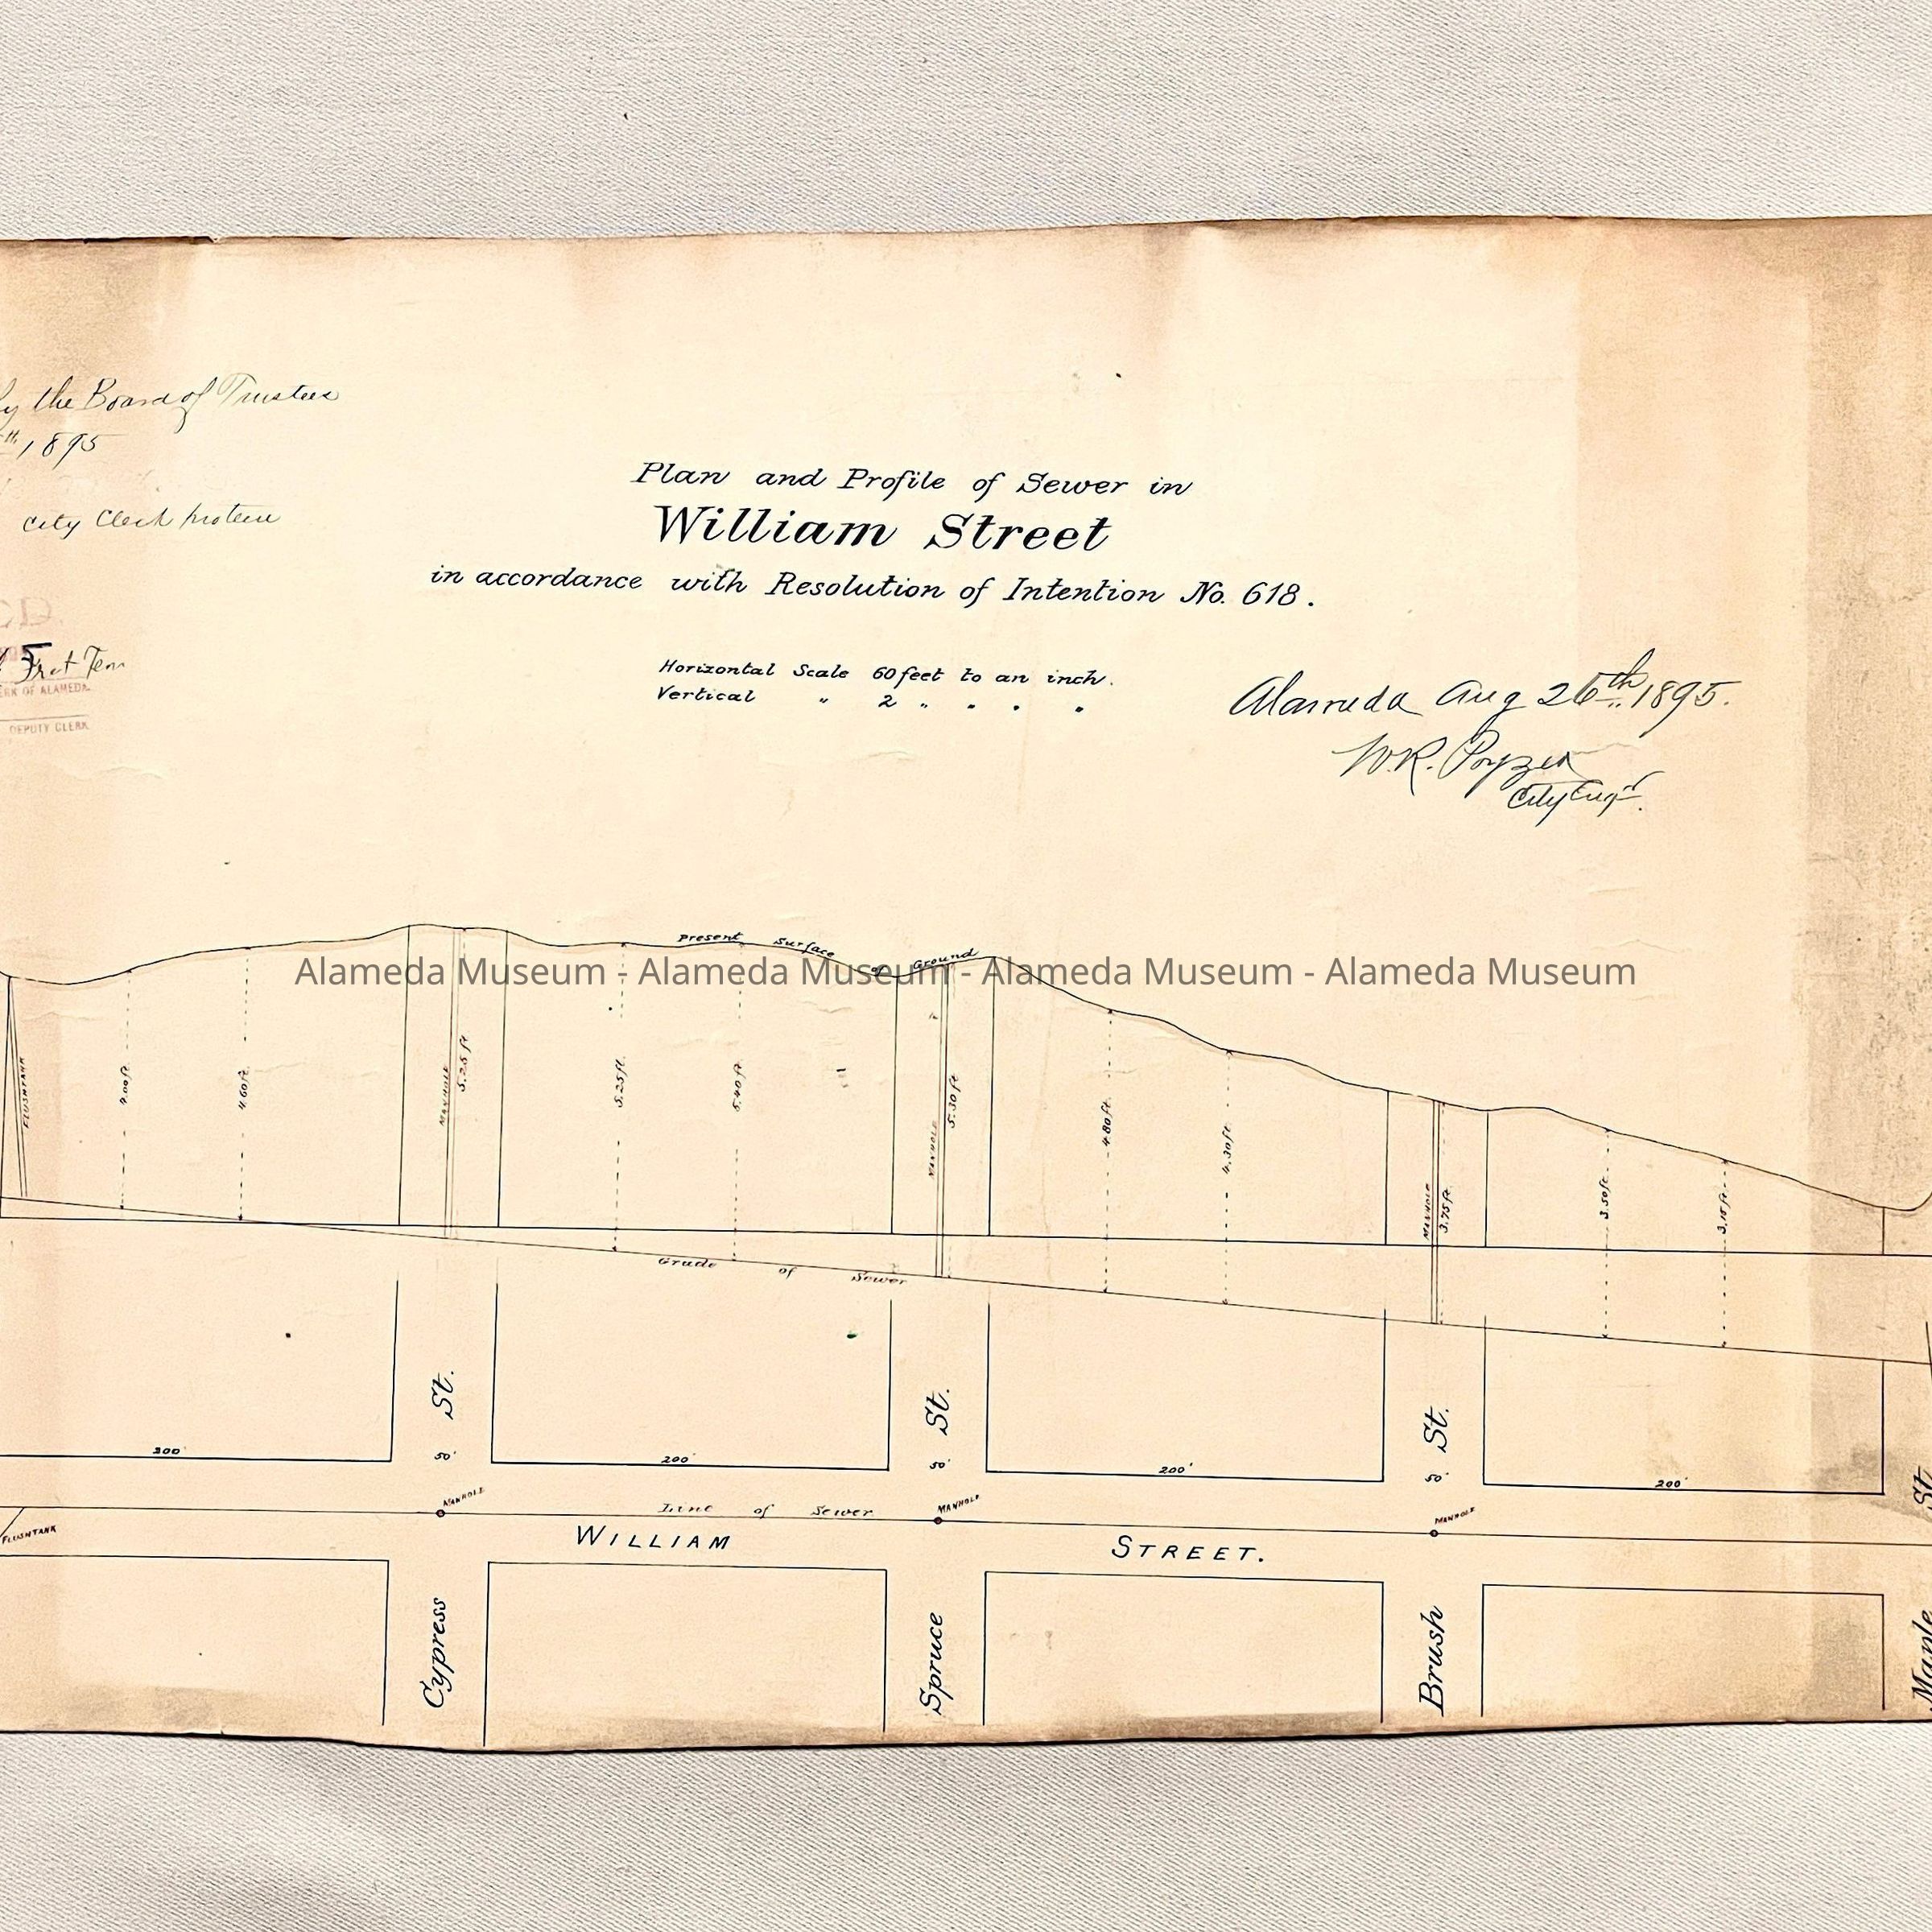 by the Board of Trustees
th, 1895
City Clerk protem
ERK OF ALAMEDA.
DEPUTY CLERK
Plan and Profile of Sewer in
William Street
in accordance with Resolution of Intention No. 618.
Horizontal Scale 60 feet to an inch.
Vertical " 2 " " " "
Alameda Aug 26th 1895.
W.R. Poyzer
City Engr.
Present Surface of Ground
Alameda Museum - Alameda Museum - Alameda Museum - Alameda Museum
FLUSHTANK
4.00ft.
4.60ft.
MANHOLE
5.25 ft
5.25ft.
5.40 ft.
MANHOLE
5.30 ft
4.80ft.
4.30ft.
MANHOLE
3.75 ft.
3.50ft.
3.15ft.
Grade of Sewer
St.
St.
St.
St.
200'
50'
200'
50'
200'
50'
200'
MANHOLE
Line of Sewer
MANHOLE
MANHOLE
FLUSHTANK
WILLIAM STREET.
Cypress
Spruce
Brush
Maple